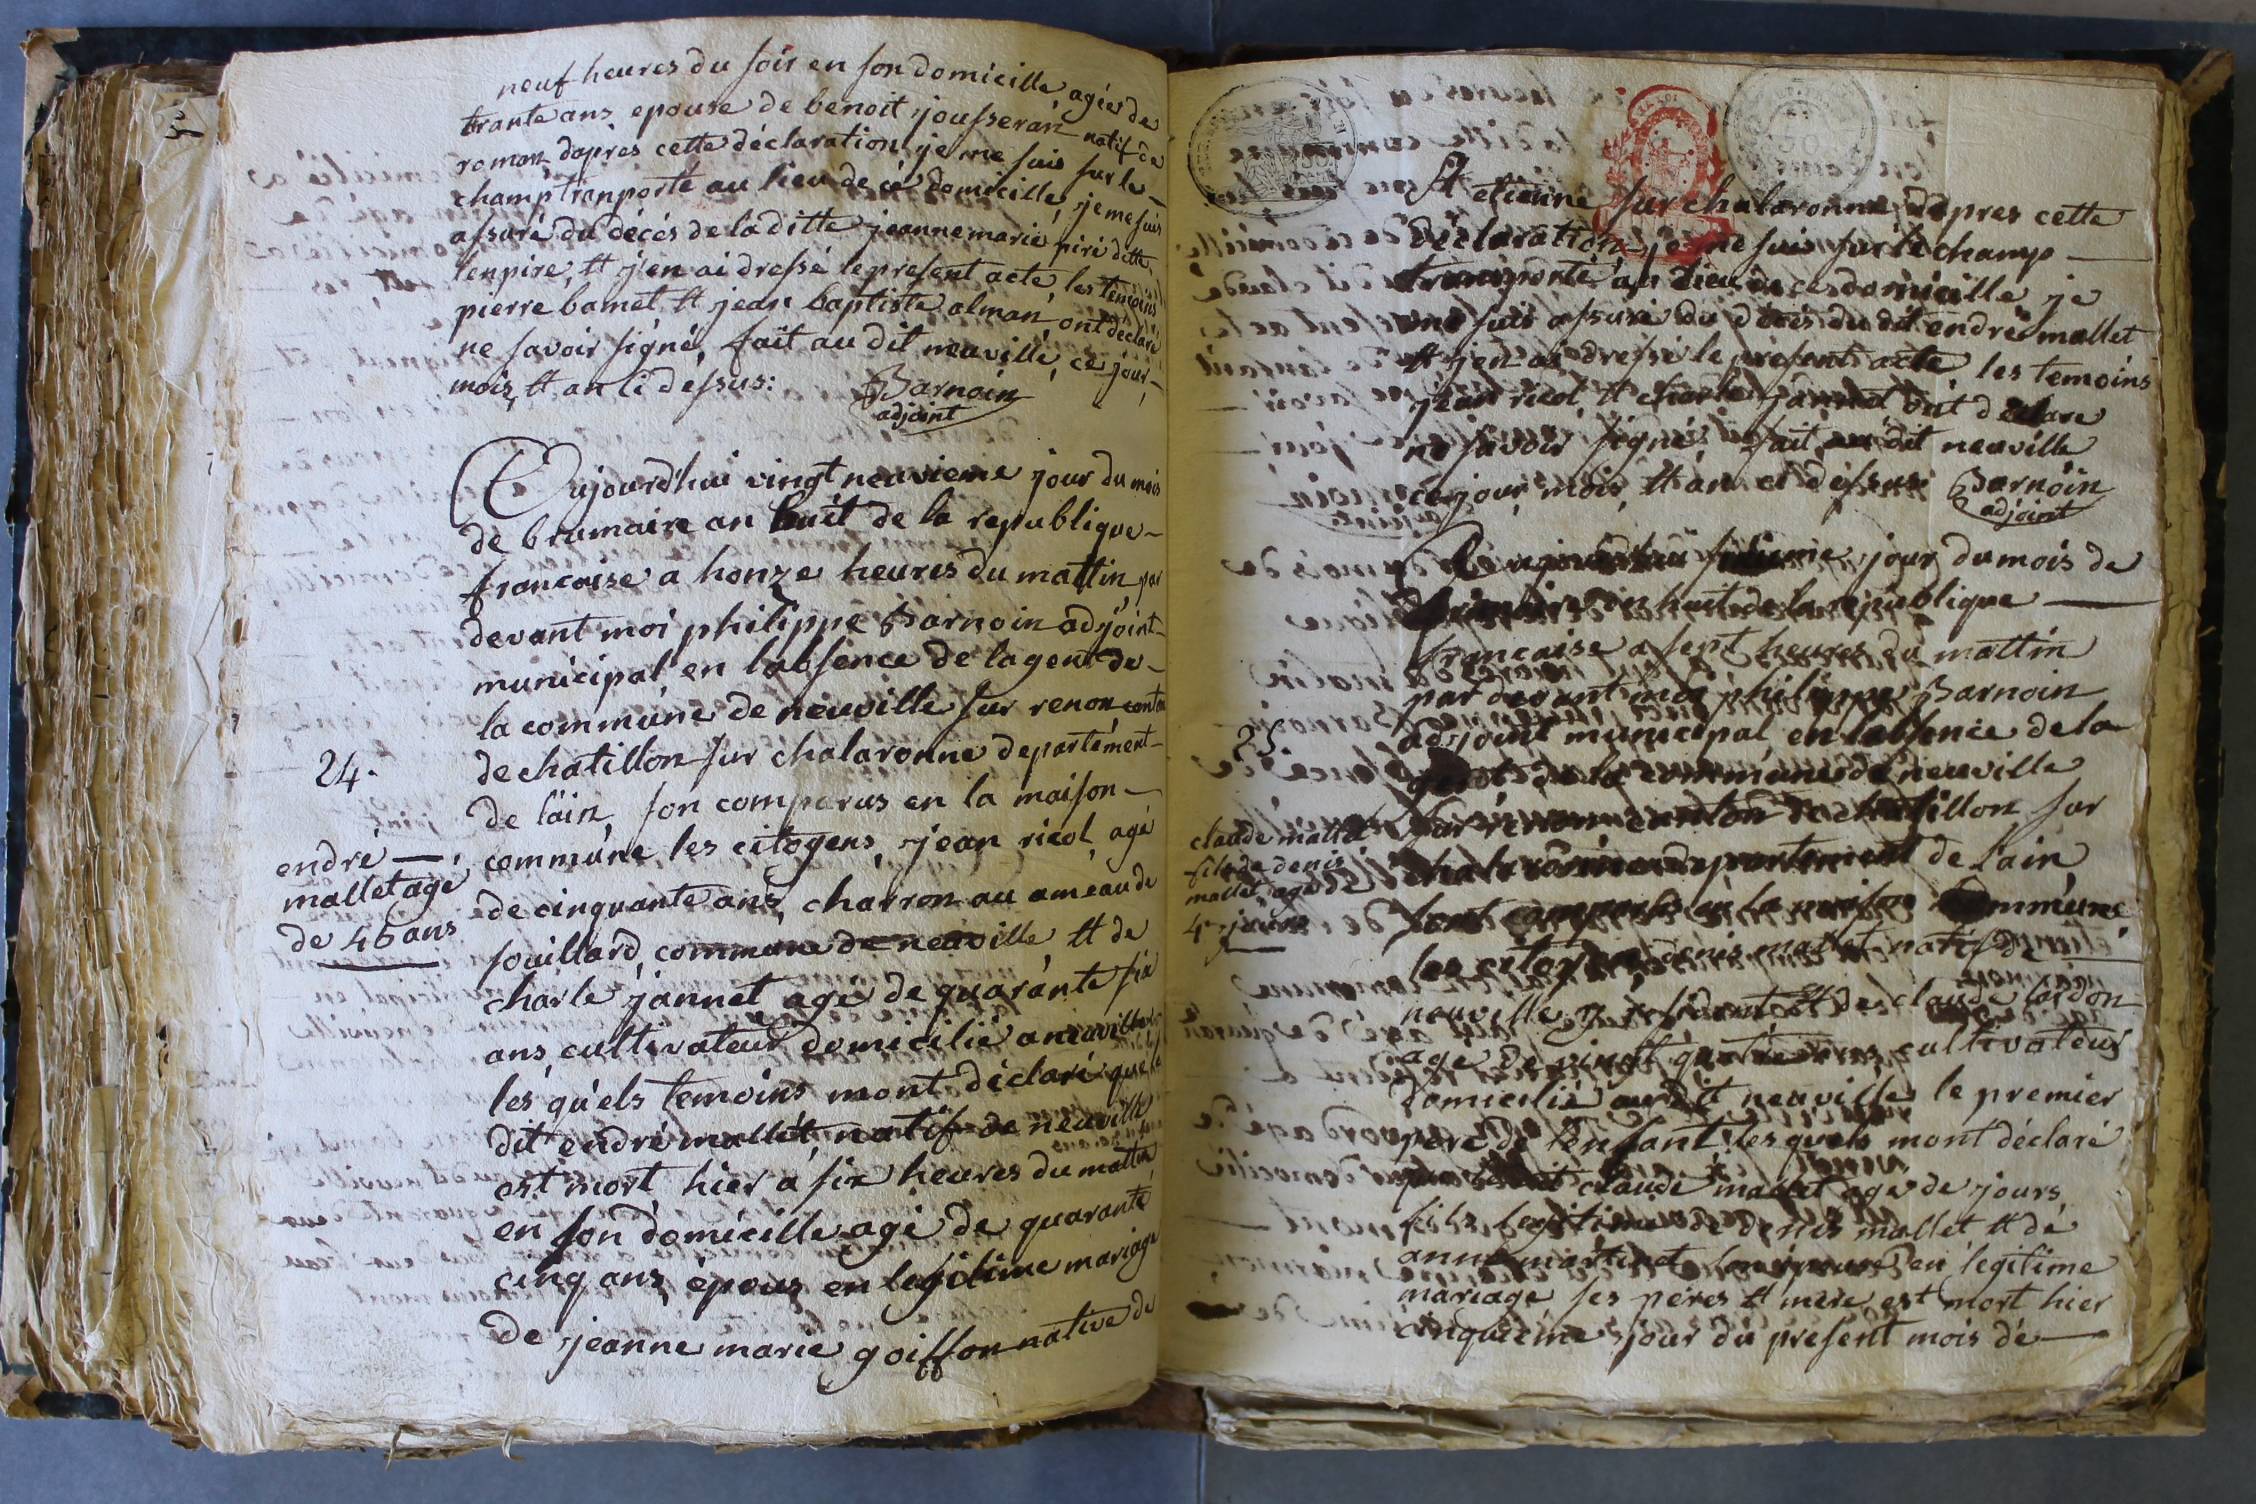 neuf heures du soir en son domicille agée de
trante ans epouse de benoit jousseran natif de
roman dapres cette déclaration je me suis sur le
champ tranporté au lieu de cé domicille, je me suis
assuré du décés de la ditte jeanne marie piré dette
lenpire, et j'en ai dressé le present acte, les temoins
pierre bamet et jean baptiste alman, ont déclaré
ne savoir signé, fait au dit neuville, ce jour,
mois, et an ci dessus:
Barnoin
adjoint
Aujourd'hui vingt neuvieme jour du mois
de brumaire an huit de la republique
francaise a honze heures du mattin, par
devant moi philippe Barnoin adjoint
municipal en labsence de lagent de
la commune de neuville sur renon canton
de chatillon sur chalaronne departement
de l'ain, son comparus en la maison
commune les citoyens, jean ricol, agé
de cinquante ans, charron au ameau de
souillard, commune de neuville, et de
charle jannet agé de quarante six
ans, cultivateur domicilié a neuville
lés qu'els temoins mont déclaré que le
dit endré mallet, natif de neuville
est mort hier a six heures du mattin
en son domicille agé de quarante
cinq ans, épous en legitime mariage
de jeanne marie goiffon native de
24.
endré
mallet agé
de 46 ans
St etienne sur chalaronne dapres cette
déclaration, je me suis sur le champ
tranporté au lieu de ce domicille, je
me suis assuré du décés du dit endré mallet
et j'en ai dressé le présent acte, les temoins
jean ricol, et charle jannet ont déclare
ne savoir signé, fait au dit neuville
ce jour, mois, et an ci dessus
Barnoin
adjoint
aujourd'hui jour du mois de
an huit de la republique
francaise a sept heures du mattin
par devant moi philippe Barnoin
adjoint municipal, en labsence de la
gent de la commune de neuville
sur renon canton de chatillon sur
chalaronne departement de l'ain,
sont comparus en la maison commune
les citoyens, denis mallet natif de
neuville y residant et de claude lardon
agé de vingt quatre ans, cultivateur
domicilié au dit neuville le premier
pere de l'enfant, lesquels mont déclaré
claude mallet agé de jours,
fils legitime de denis mallet et de
anne martinet son epouse en legitime
mariage, ses péres et mére, est mort hier
cinquieme jour du present mois dé
25
claude mallet
fils de denis
mallet, agé
4 jours